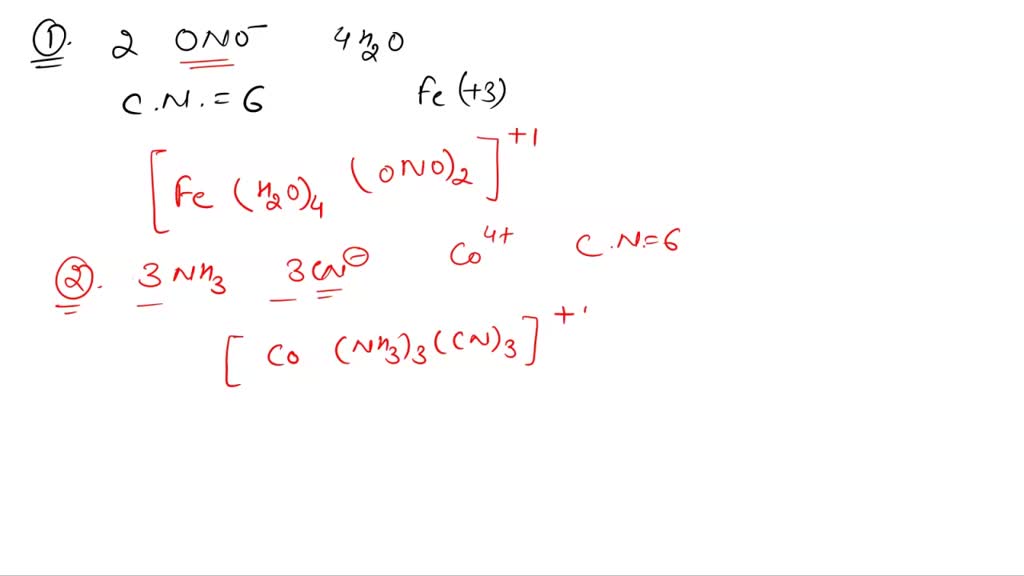 ①. 2 ONO⁻ 4H₂O
C.N. = 6 Fe (+3)
[Fe (H₂O)₄ (ONO)₂]⁺¹
②. 3 NH₃ 3CN⊖ Co⁴⁺ C.N.=6
[Co (NH₃)₃(CN)₃]⁺